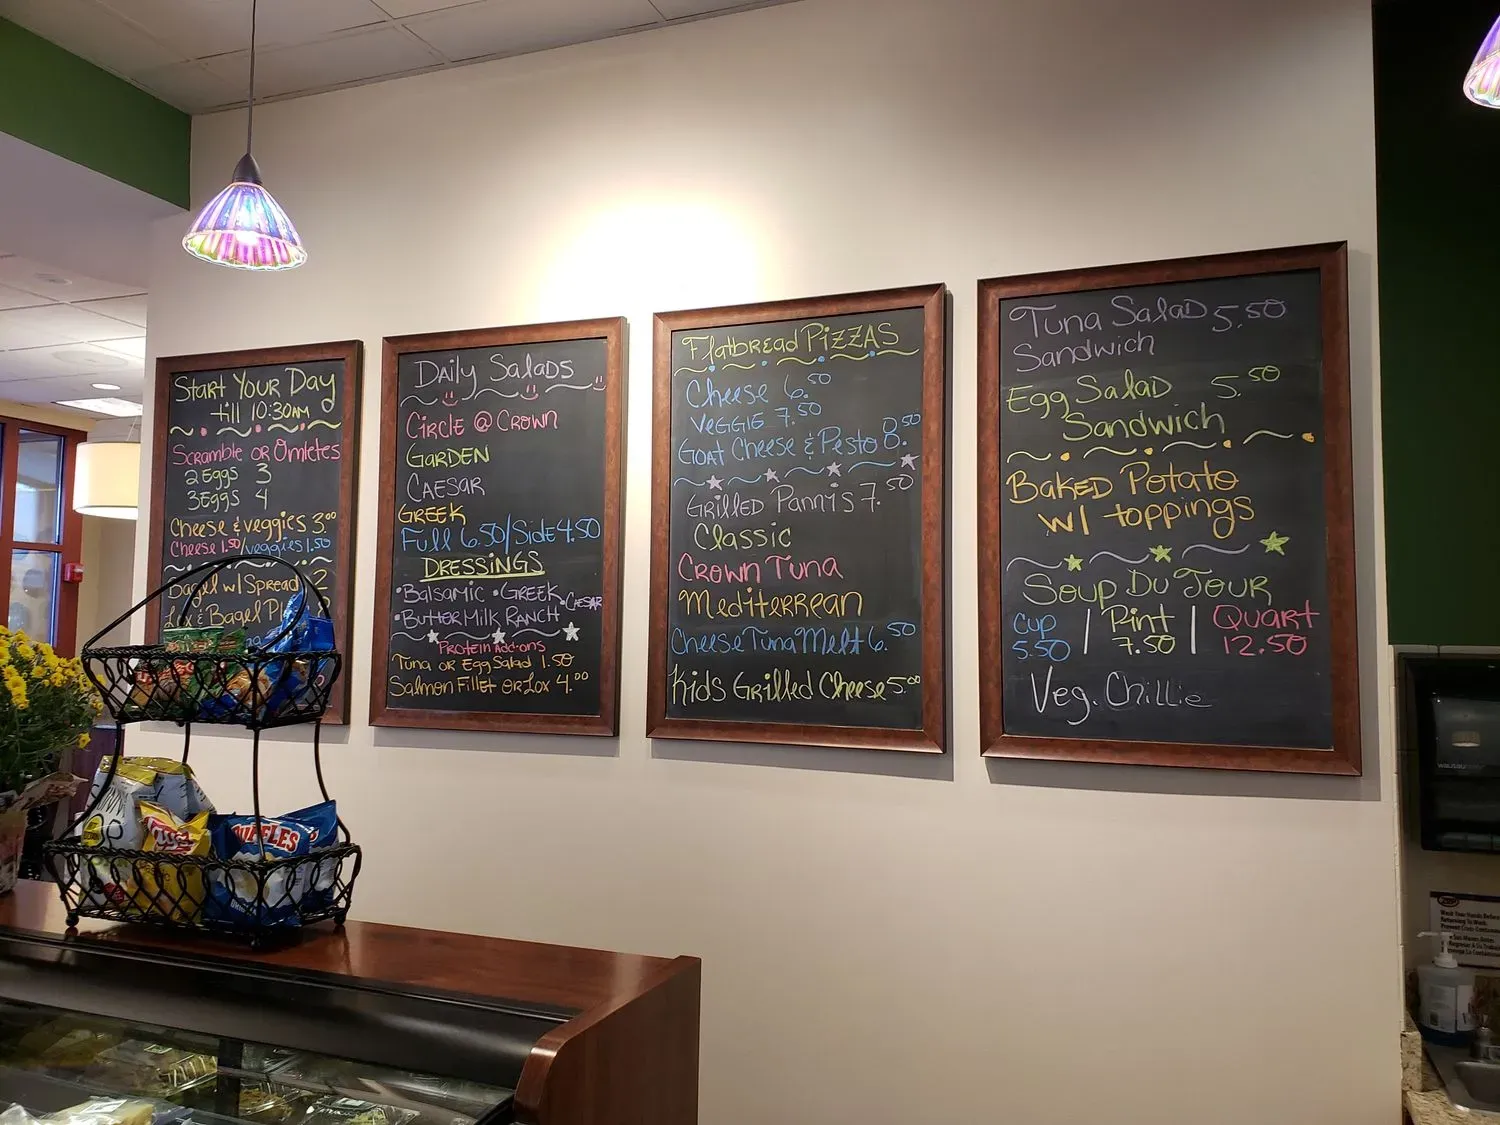 Start Your Day
till 10:30AM
Scramble or Omletes
2 Eggs 3
3 Eggs 4
Cheese & veggies 3.00
Cheese 1.50/veggies 1.50
Bagel w/ Spread 2
Lox & Bagel
Daily Salads
Circle @ Crown
Garden
Caesar
Greek
Full 6.50/Side 4.50
Dressings
• Balsamic • Greek • Caesar
• Butter Milk Ranch
Protein Add-ons
Tuna or Egg Salad 1.50
Salmon Fillet or Lox 4.00
Flatbread Pizzas
Cheese 6.50
Veggie 7.50
Goat Cheese & Pesto 8.50
Grilled Pannis 7.50
Classic
Crown Tuna
Mediterrean
Cheese Tuna Melt 6.50
Kids Grilled Cheese 5.00
Tuna Salad 5.50
Sandwich
Egg Salad 5.50
Sandwich
Baked Potato
w/ toppings
Soup Du Jour
Cup | Pint | Quart
5.50 7.50 12.50
Veg. Chillie
RUFFLES